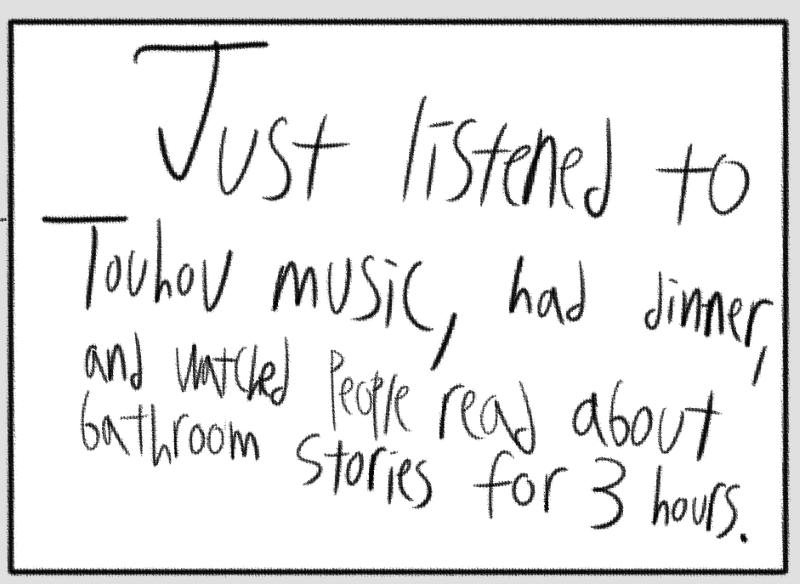 Just listened to
Touhou music, had dinner,
and watched people read about
bathroom stories for 3 hours.